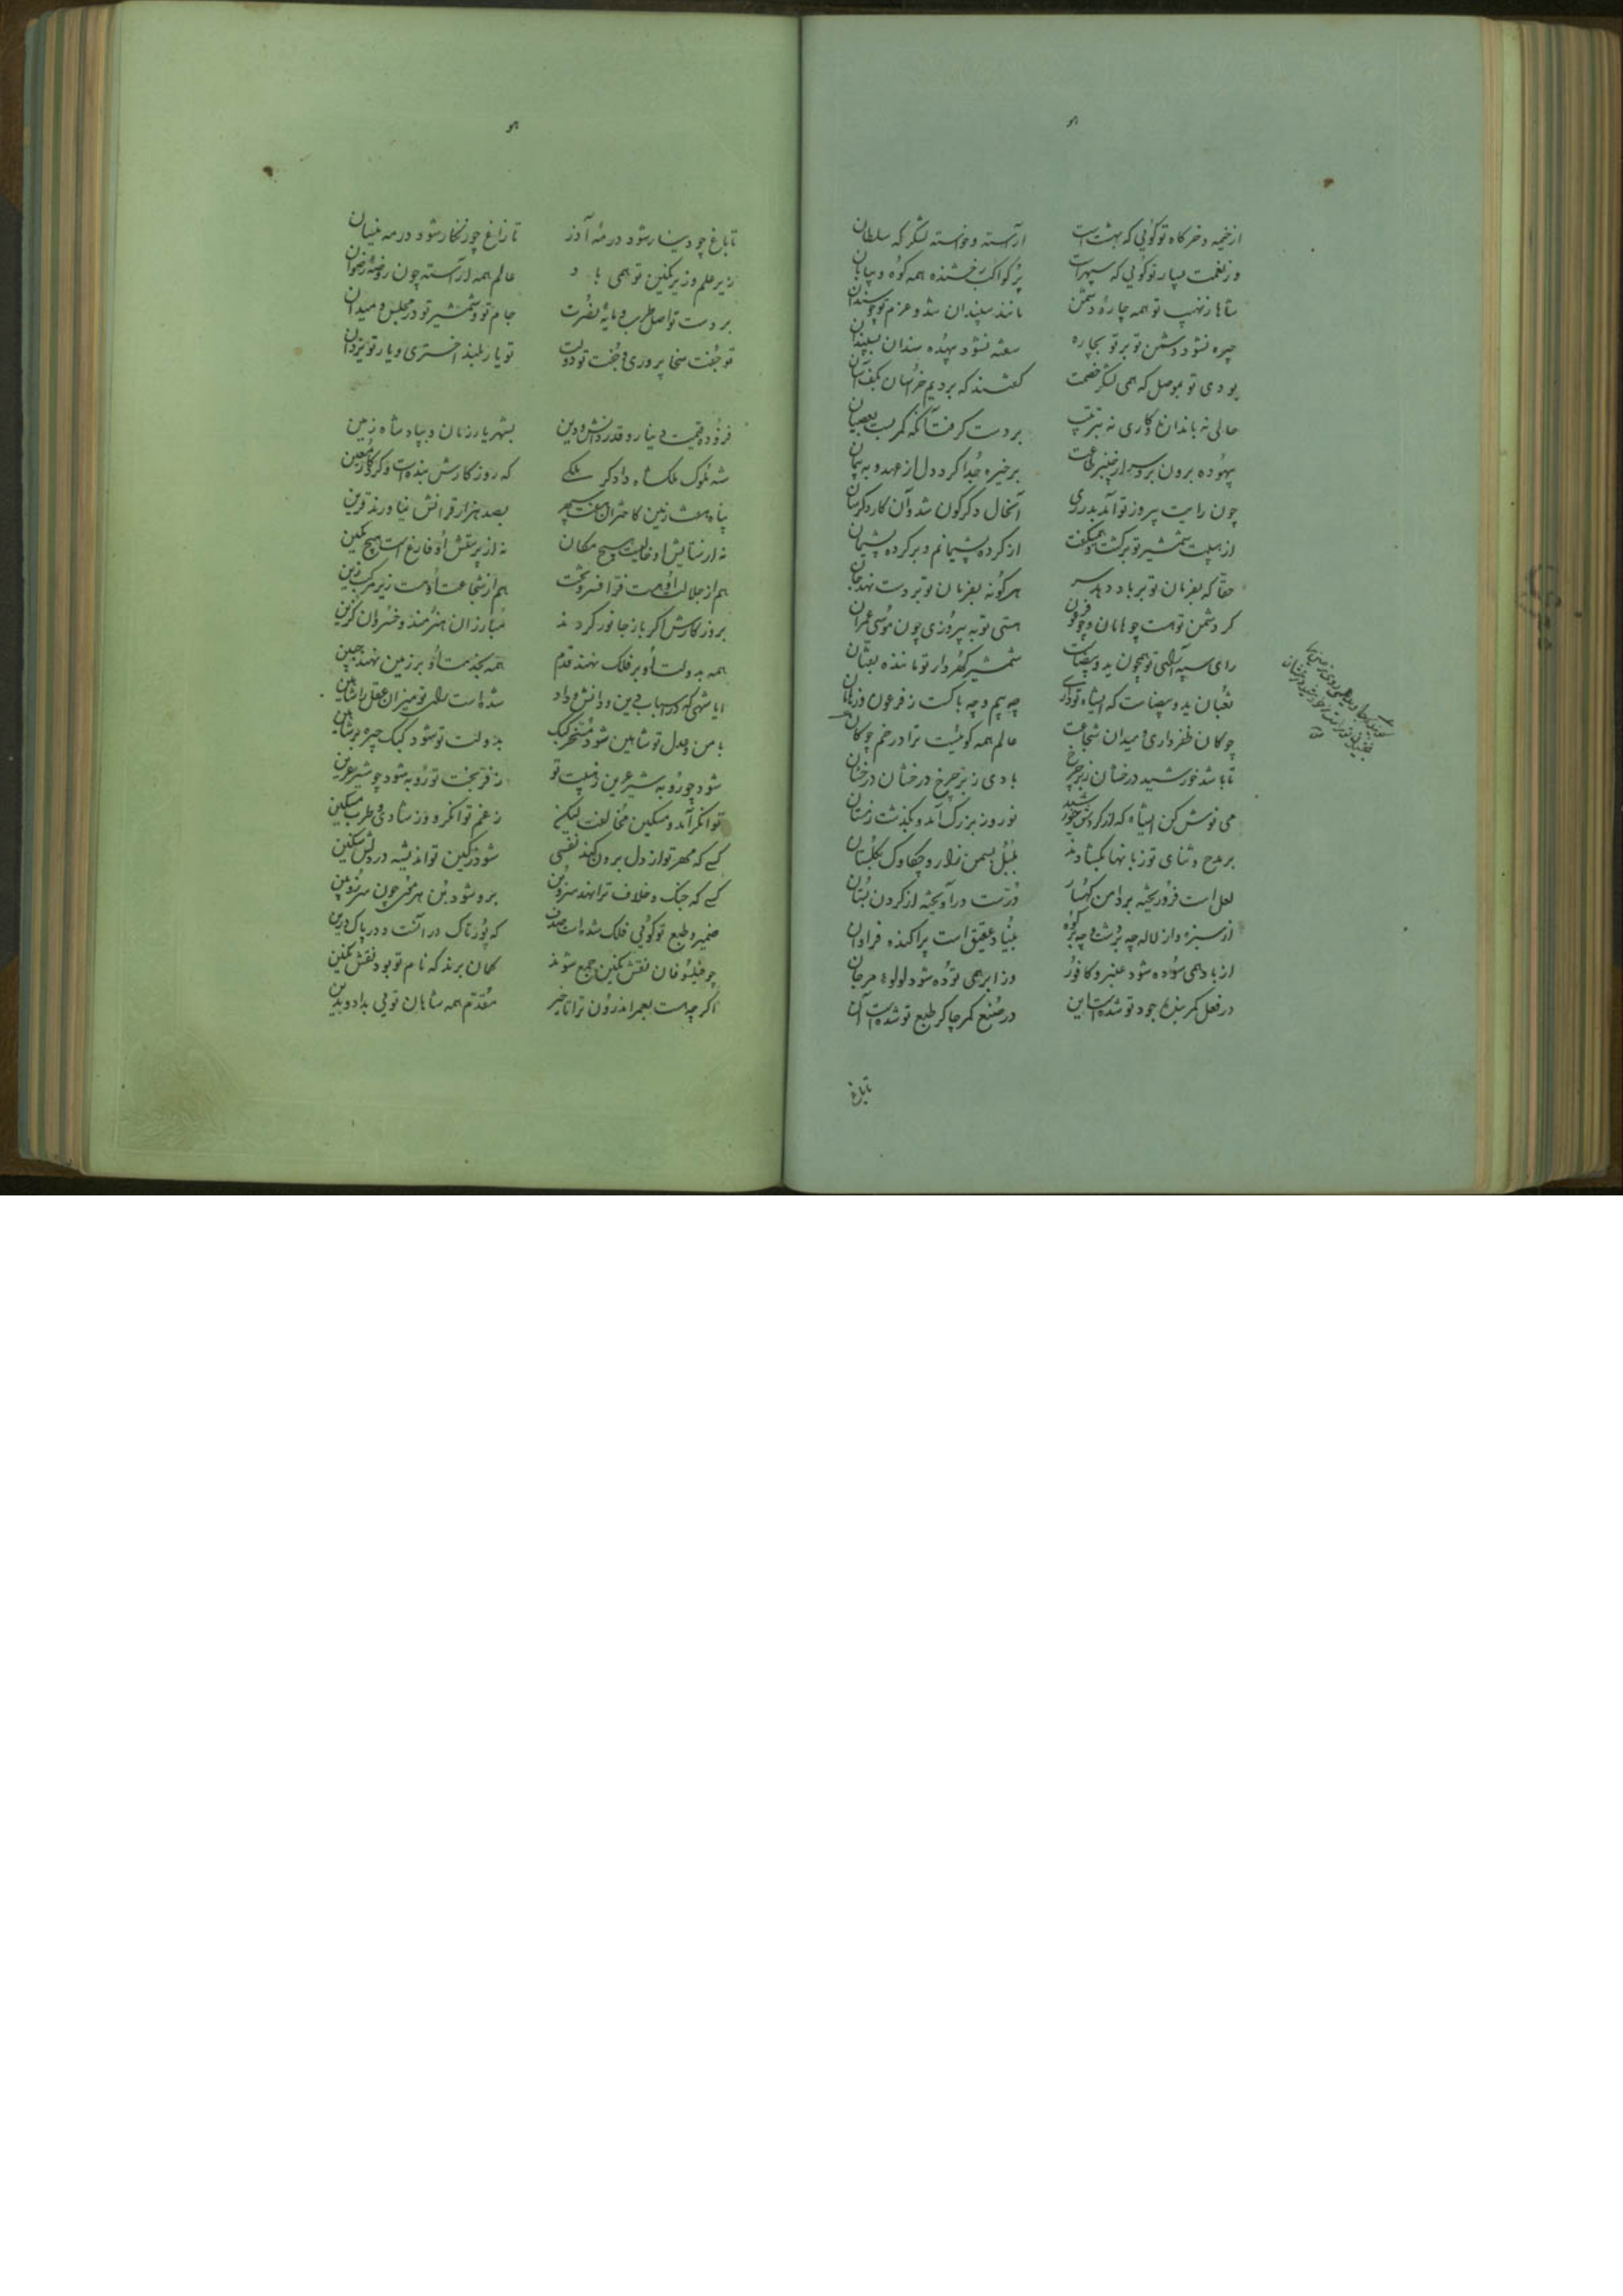 هو
از خیمه و خرگاه تو گوئی که بهشت است آراسته و خواسته لشکرگه سلطان
وز نعمت بسیار تو گوئی که سپهر است پر کواکب رخشنده همه کوه و بیابان
شاها ز نهیب تو همه چاره دشمن مانند سپندان شد و عزم تو چو سندان
چیره نشود دشمن تو بر تو بچاره سفته نشود بیهده سندان بسپندان
بودی تو بموصل که همی لشکر خصمت گفتند که بردیم خراسان بکف آسان
حالی نه باندازه و کاری نه بترتیب بر دست گرفت آنکه کمر بست بعصیان
بیهوده برون برد سر از چنبر طاعت بر خیره جدا کرد دل از عهد و به پیمان
چون رایت پیروز تو آمد بدر ری آنحال دگرگون شد و آن کار دگرسان
از هیبت شمشیر تو برگشت و همیگفت از کرده پشیمانم و بر کرده پشیمان
حقا که بفرمان تو بر باد دهد سر هر کو نه بفرمان تو بر دست نهد جان
گر دشمن تو هست چو هامان و چو فرعون هستی تو به پیروزی چون موسی عمران
رای سپه آرای تو همچون ید و بیضاست شمشیر گهردار تو ماننده بثعبان
ثعبان ید و بیضاست که ایشاه تو داری چه بیم و چه باکست ز فرعون و ز هامان
چوگان ظفر داری و میدان شجاعت عالم همه گوئیست ترا در خم چوگان
تا باشد خورشید درخشان ز بر چرخ بادی ز بر چرخ درخشان درخشان
می نوش کن ایشاه که از گردش خورشید نوروز بزرگ آمد و بگذشت زمستان
بر مدح و ثنای تو زبانها بگشادند بلبل بسمن زار و چکاوک بگلستان
لعل است فرو ریخته بر دامن کهسار درست در آویخته از گردن بستان
از سبزه و از لاله چه بر دشت و چه بر کوه میناو عقیق است پراکنده فراوان
از باد همی سوده شود عنبر و کافور وز ابر همی توده شود لولوء مرجان
در فعل کمر بنده جود تو شده است این در صنع کمر چاکر طبع تو شده است آن
تا باغ
هو
تا باغ چو دینار شود در مه آذر تا زاغ چو زنگار شود در مه نیسان
زیر علم و زیر نگین تو همی باد عالم همه آراسته چون روضه رضوان
بر دست تو اصل طرب و مایه نصرت جام تو و شمشیر تو در مجلس و میدان
تو جفت سخا پروری و جفت تو دولت تو یار بلند اختری و یار تو یزدان
فزود قیمت دینار و قدر دانش و دین بشهریار زمان و بپادشاه زمین
شه ملوک ملکشاه دادگر ملکی که روز کارش بنده است و کردگار معین
پناه هفت زمین کاختران هفت سپهر بصد هزار قرانش نیاورند قرین
نه از ستایش او خالیست هیچ مکان نه از پرستش او فارغ است هیچ مکین
هم از جلالت او هست فر افسر و تخت هم از شجاعت او هست زیر مرکب زین
بروز کارش اگر باز جانور گردند مبارزان هنرمند و خسروان گزین
همه بدولت او بر فلک نهند قدم همه بخدمت او بر زمین نهند جبین
ایا شهی که در اسباب دین و دانش و داد شده است رای تو میزان عقل را شاهین
بامن و عدل تو شاهین شود مسخر کبک بدولت تو شود کبک چیره بر شاهین
شود چو روبه شیر عرین ز هیبت تو ز فر بخت تو روبه شود چو شیر عرین
توانگر آمد و مسکین مخالفت لیکن ز غم توانگر و وز شادی و طرب مسکین
کسی که مهر تو از دل برون کند نفسی شود ز کین تو اندیشه در دلش سکین
کسی که جنگ و خلاف ترا نهد سر و بن برو شود بن هر موی چون سر زوبین
ضمیر و طبع تو گوئی فلک شده است و صدف که نور پاک در آنست و در پاک درین
چو فیلسوفان نقش نگین جمع شوند گمان برند که نام تو بود نقش نگین
اگر چه هست بعمر اندرون ترا تاخیر مقدم همه شاهان توئی بداد و بدین